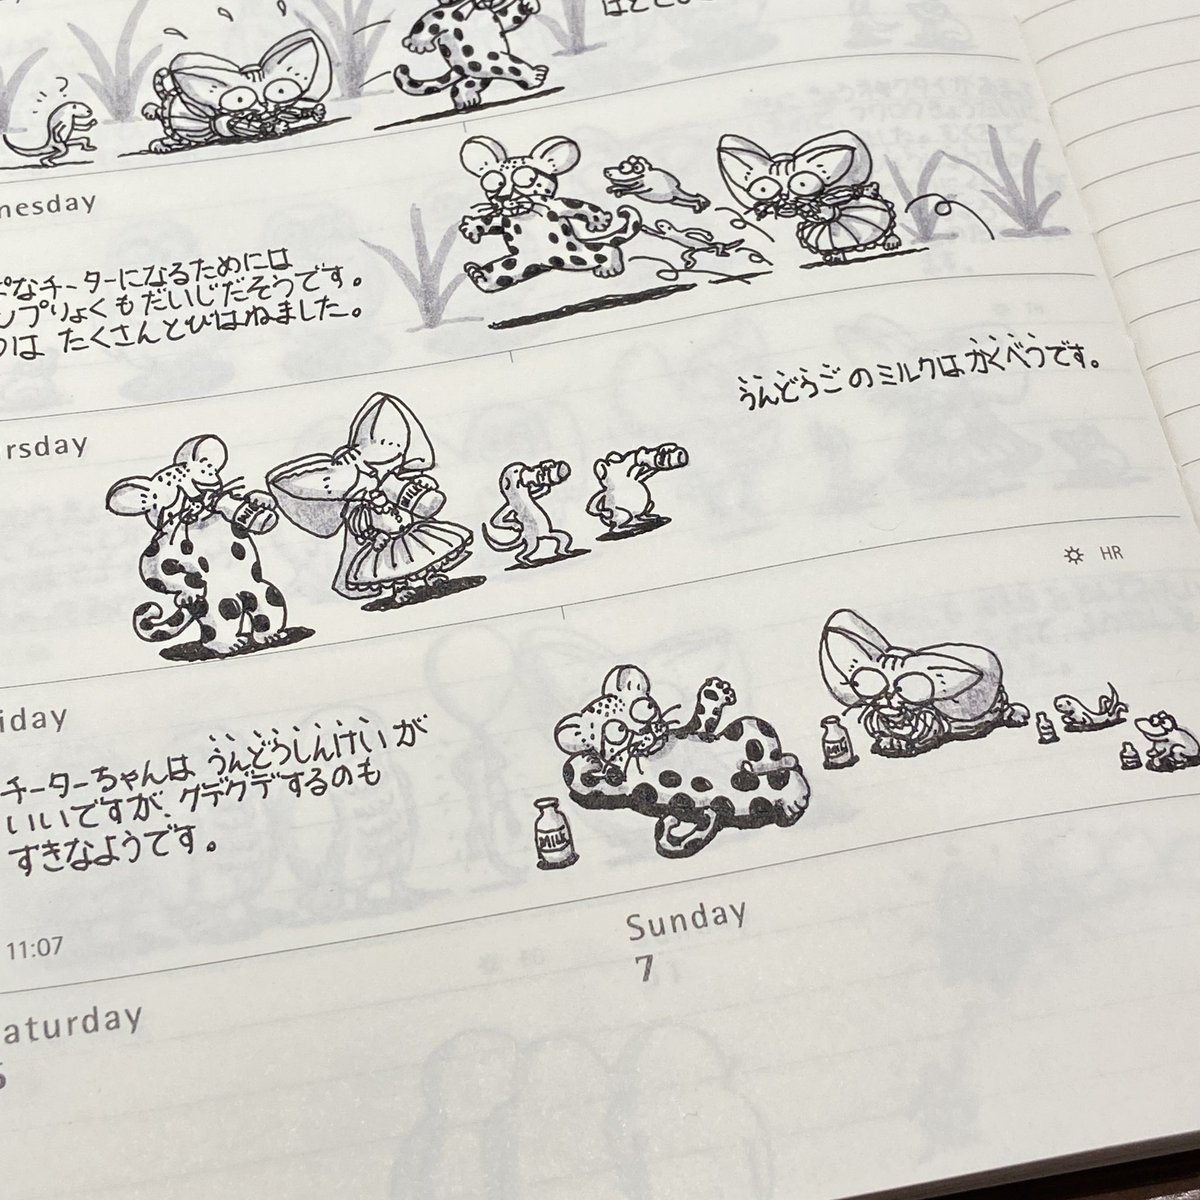 nesday
なチーターになるためには
ンプりょくもだいじだそうです。
は たくさんとびはねました。
rsday
うんどうごのミルクはかくべつです。
MILK
MILK
HR
iday
チーターちゃんは うんどうしんけいが
いいですが、グデグデするのも
すきなようです。
MILK
MILK
11:07
Sunday
7
aturday